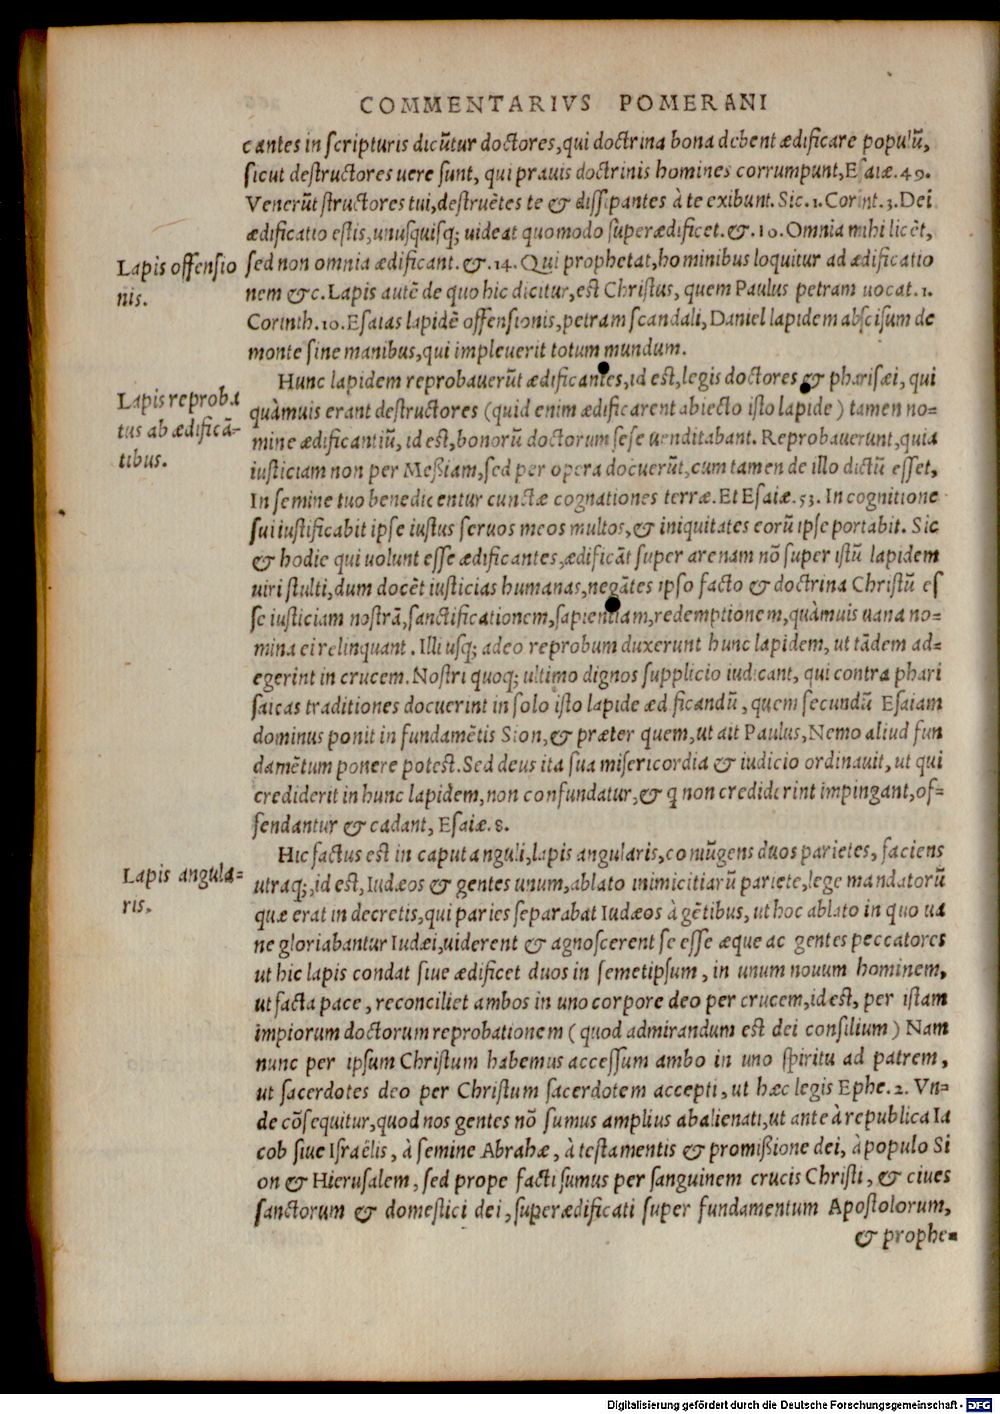 COMMENTARIVS POMERANI
cantes in scripturis dicũtur doctores, qui doctrina bona debent ædificare populũ,
sicut destructores uere sunt, qui prauis doctrinis homines corrumpunt, Esaiæ. 49.
Venerũt structores tui, destruẽtes te & dissipantes à te exibunt. Sic. 1. Corint. 3. Dei
ædificatio estis, unusquisq; uideat quomodo superædificet. &. 10. Omnia mihi licẽt,
Lapis offensio
nis.
sed non omnia ædificant. &. 14. Qui prophetat, hominibus loquitur ad ædificatio
nem &c. Lapis autẽ de quo hic dicitur, est Christus, quem Paulus petram uocat. 1.
Corinth. 10. Esaias lapidẽ offensionis, petram scandali, Daniel lapidem abscisum de
monte sine manibus, qui impleuerit totum mundum.
Hunc lapidem reprobauerũt ædificantes, id est, legis doctores & pharisæi, qui
Lapis reproba
tus ab ædificã-
tibus.
quàmuis erant destructores (quid enim ædificarent abiecto isto lapide) tamen no=
mine ædificantiũ, id est, bonorũ doctorum sese uenditabant. Reprobauerunt, quia
iusticiam non per Meßiam, sed per opera docuerũt, cum tamen de illo dictũ esset,
In semine tuo benedicentur cunctæ cognationes terræ. Et Esaiæ. 53. In cognitione
sui iustificabit ipse iustus seruos meos multos, & iniquitates eorũ ipse portabit. Sic
& hodie qui uolunt esse ædificantes, ædificãt super arenam nõ super istũ lapidem
uiri stulti, dum docẽt iusticias humanas, negãtes ipso facto & doctrina Christũ es
se iusticiam nostrã, sanctificationem, sapientiam, redemptionem, quàmuis uana no=
mina ei relinquant. Illi usq; adeo reprobum duxerunt hunc lapidem, ut tãdem ad=
egerint in crucem. Nostri quoq; ultimo dignos supplicio iudicant, qui contra phari
saicas traditiones docuerint in solo isto lapide æd ficandũ, quem secundũ Esaiam
dominus ponit in fundamẽtis Sion, & præter quem, ut ait Paulus, Nemo aliud fun
damẽtum ponere potest. Sed deus ita sua misericordia & iudicio ordinauit, ut qui
crediderit in hunc lapidem, non confundatur, & q non crediderint impingant, of=
fendantur & cadant, Esaiæ. 8.
Hic factus est in caput anguli, lapis angularis, coniũgens duos parietes, faciens
Lapis angula=
ris.
utraq;, id est, Iudæos & gentes unum, ablato inimicitiarũ pariete, lege mandatorũ
quæ erat in decretis, qui paries separabat Iudæos à gẽtibus, ut hoc ablato in quo ua
ne gloriabantur Iudæi, uiderent & agnoscerent se esse æque ac gentes peccatores
ut hic lapis condat siue ædificet duos in semetipsum, in unum nouum hominem,
ut facta pace, reconciliet ambos in uno corpore deo per crucem, id est, per istam
impiorum doctorum reprobationem (quod admirandum est dei consilium) Nam
nunc per ipsum Christum habemus accessum ambo in uno spiritu ad patrem,
ut sacerdotes deo per Christum sacerdotem accepti, ut hæc legis Ephe. 2. Vn=
de cõsequitur, quod nos gentes nõ sumus amplius abalienati, ut ante à republica Ia
cob siue Israëlis, à semine Abrahæ, à testamentis & promißione dei, à populo Si
on & Hierusalem, sed prope facti sumus per sanguinem crucis Christi, & ciues
sanctorum & domestici dei, superædificati super fundamentum Apostolorum,
& prophe=
Digitalisierung gefördert durch die Deutsche Forschungsgemeinschaft - DFG